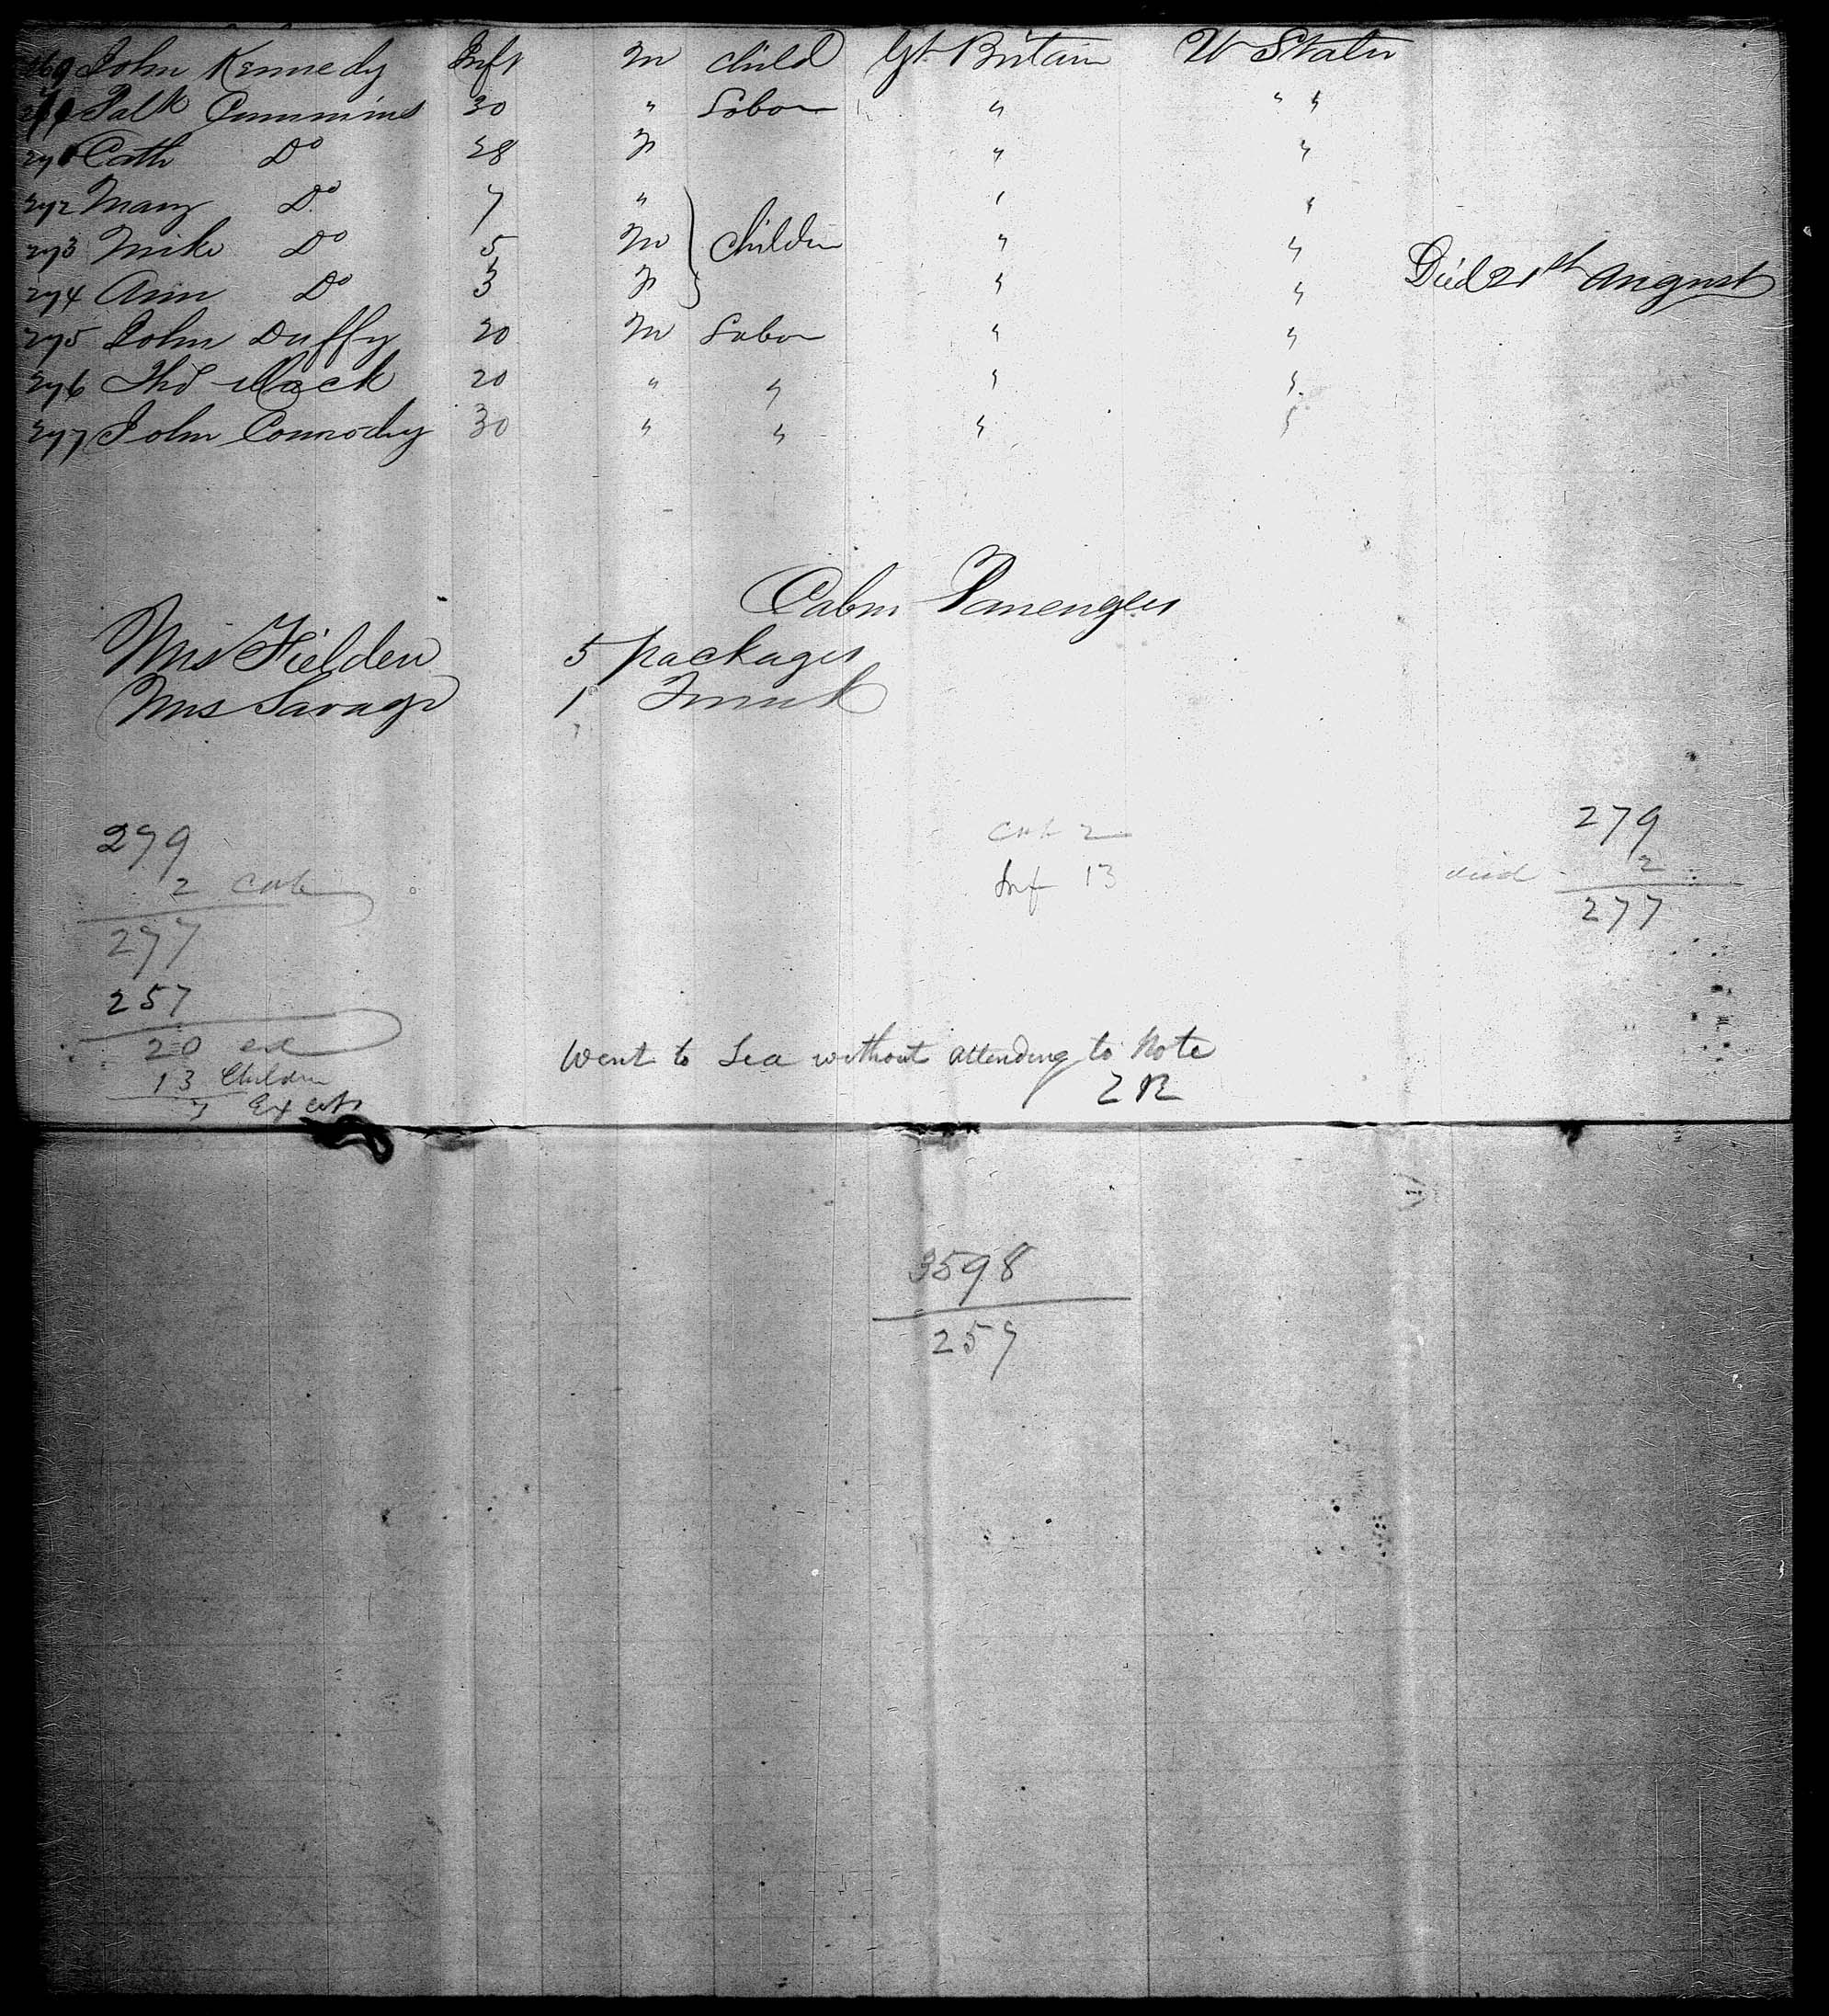 269 John Kennedy Inft M child Gt Britain U States
270 Patk Cummins 30 " Labor " " "
271 Cath Do 28 F " "
272 Mary Do 7 " " "
273 Mike Do 5 M Children " "
274 Ann Do 3 F " " Died 21st August
275 John Duffy 20 M Labor " "
276 Thos Mack 20 " " " "
277 John Connody 30 " " " "
Cabin Passengers
Mrs Fielden 5 packages
Mrs Savage 1 Trunk
279
2 cab
277
257
20
13 Children
7 Ex
cab 2
Inf 13
279
died 2
277
Went to Sea without attending to Note
3598
257